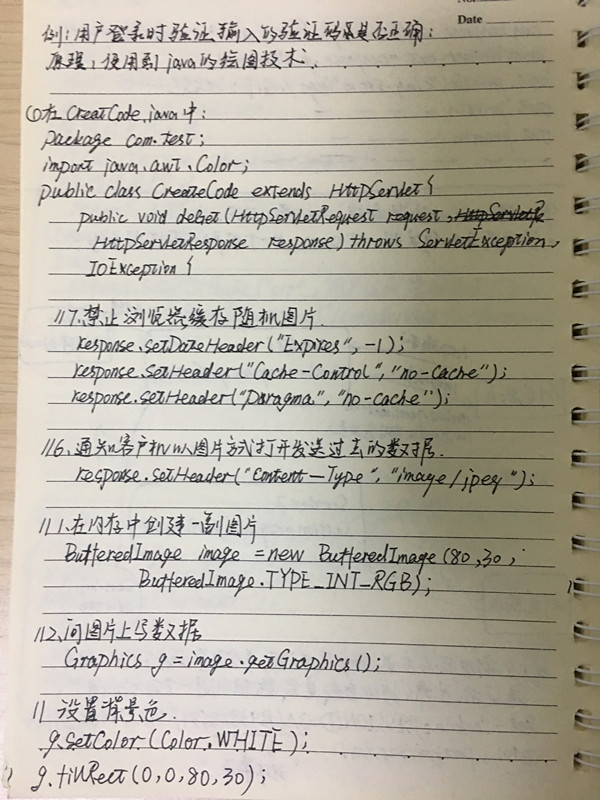 Date
例:用户登录时验证输入的验证码是否正确:
原理:使用到java的绘图技术.
①在CreatCode.java中:
package com.test;
import java.awt.Color;
public class CreateCode extends HttpServlet {
public void doGet (HttpServletRequest request,
HttpServletResponse response) throws ServletException,
IOException {
//7.禁止浏览器缓存随机图片
response.setDateHeader("Expires", -1);
response.setHeader("Cache-Control", "no-cache");
response.setHeader("Paragma", "no-cache");
//6.通知客户机以图片方式打开发送过去的数据.
response.setHeader("Content-Type", "image/jpeg");
//1.在内存中创建一副图片
BufferedImage image = new BufferedImage (80,30,
BufferedImage.TYPE_INT_RGB);
//2.向图片上写数据
Graphics g = image.getGraphics();
// 设置背景色.
g.setColor (Color.WHITE);
g.fillRect (0,0,80,30);